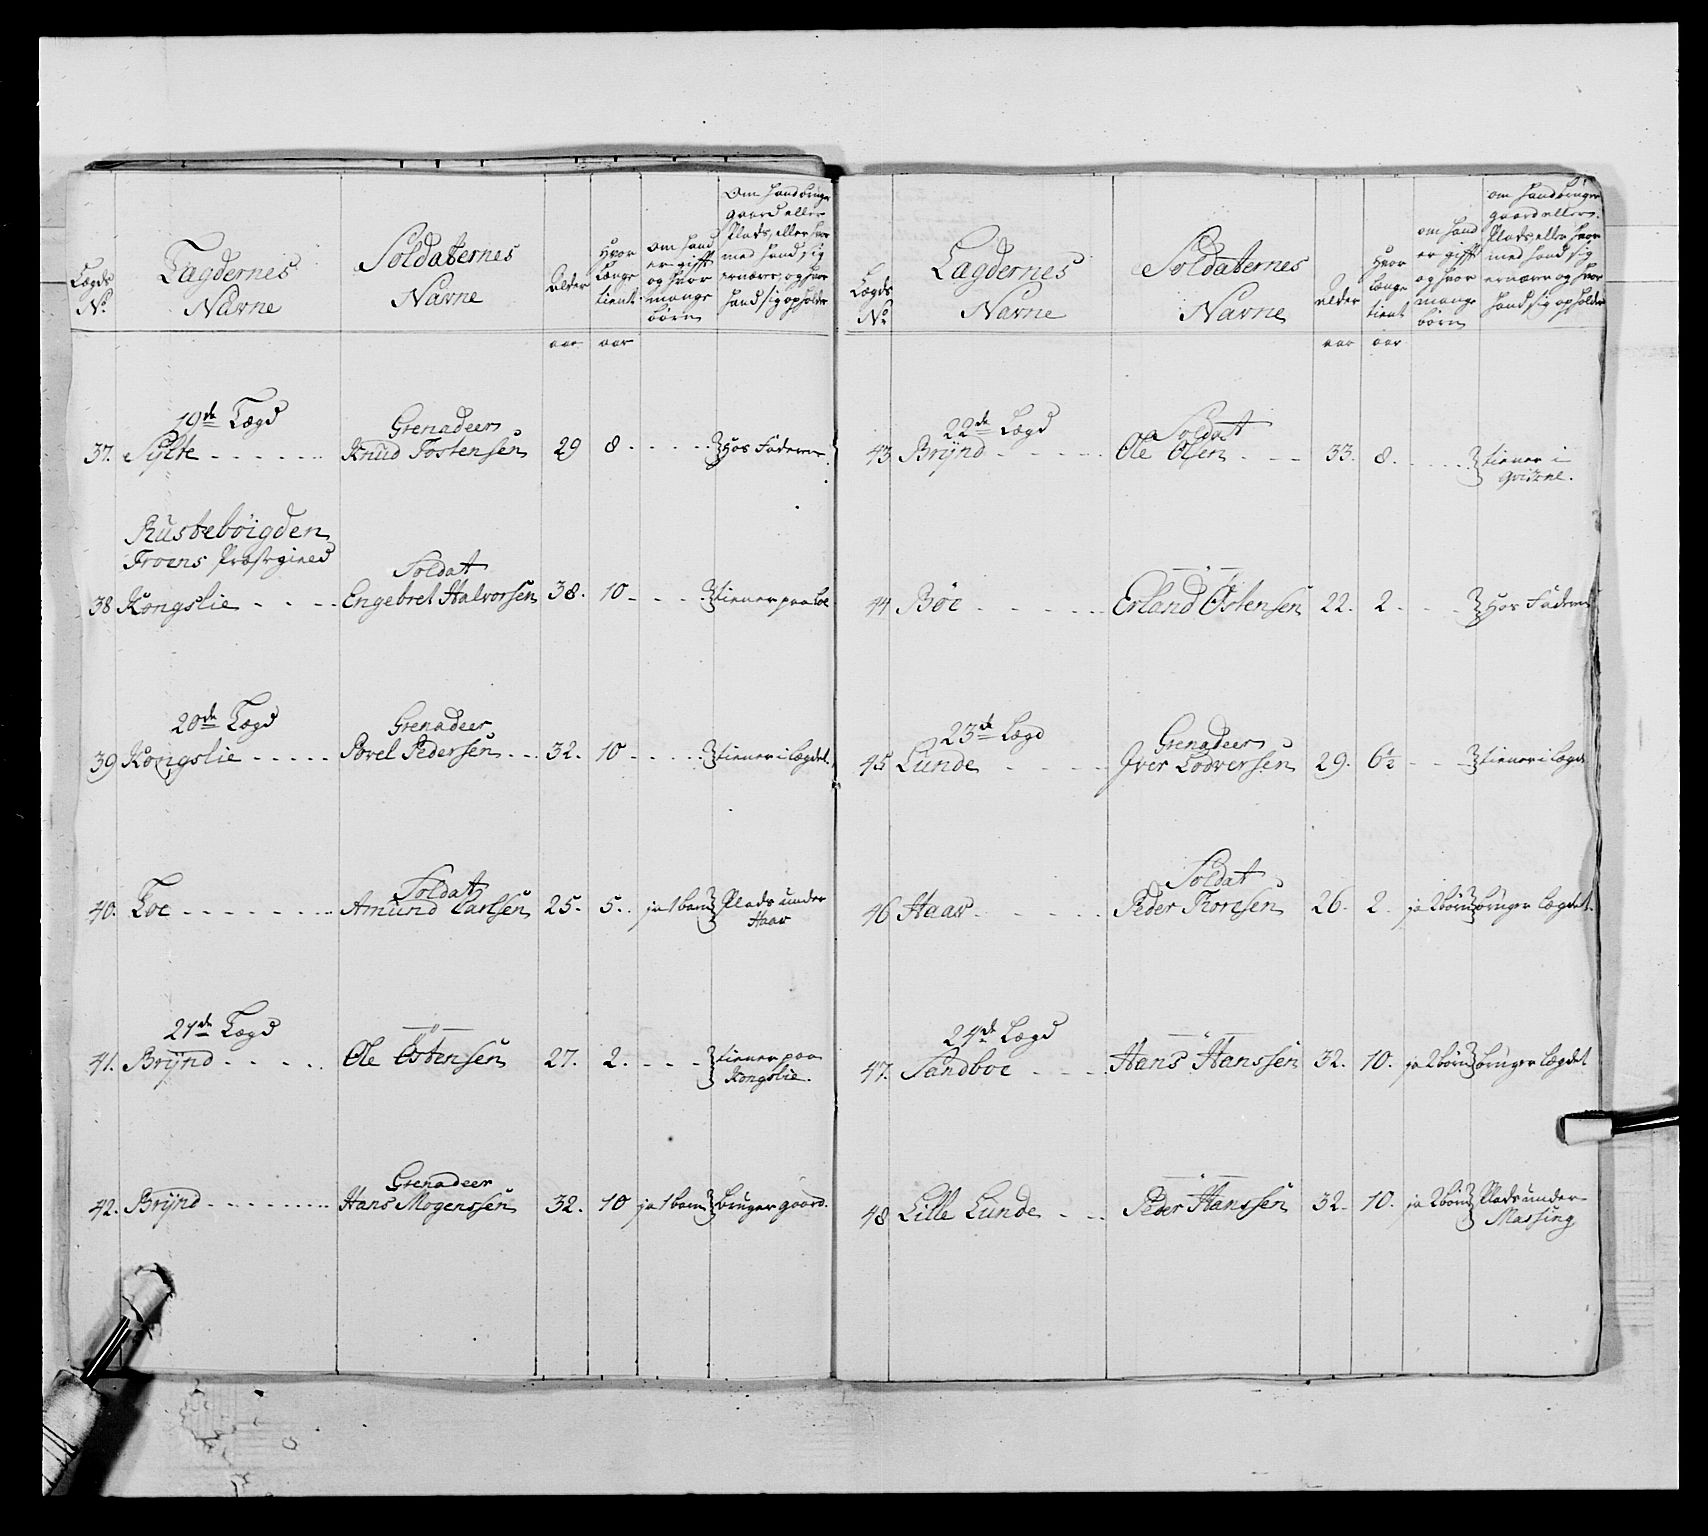 Lægds No.
Lagdernes Navne
Soldaternes Navne
Alder
Hvor Længe tient
om hand er gifft og hvor mange börn
Om hand bruger gaard eller Plads, eller hvor med hand sig ernærer, og hvor hand sig opholder
aar aar
19de Lægd
Grenadeer
37. Sylte Knud Tostensen 29 8 Hos Faderen
Rusteböigden
Froens Præstegield
Soldat
38 Kongslie Engebret Halvorsen 38. 10 tiener paa Loe
20de Lægd
Grenadeer
39 Kongslie Povel Pedersen 32. 10 tiener i Lægdet
Soldat
40. Loe Amund Carlsen 25. 5. ja 1 barn Plads under
Haav
21de Lægd
41. Brÿnd Ole Östensen 27. 2. tiener paa
Kongslie.
Grenadeer
42. Brÿnd Hans Mogenssen 32. 10 ja 1 barn bruger gaard.
Lægds No
Lagdernes Navne
Soldaternes Navne
Alder
Hvor Længe tient
om hand er gifft og hvor mange börn
om hand bruger gaard eller Plads, eller hvor med hand sig ernærer og hvor hand sig opholder
aar aar
22de Lægd
Soldat
43 Brÿnd Ole Olsen 33. 8. tiener i
Qvickne.
44 Böe Erland Östensen 22. 2 Hos Faderen
23de Lægd
Grenadeer
45 Lunde Iver Lodversen 29. 6½ tiener i Lægdet
Soldat
46 Haav Peder Thoresen 26. 2. ja 2 börn bruger Lægdet.
24de Lægd
47. Sandboe Hans Hanssen 32. 10. ja 2 börn bruger Lægdet
48 Lille Lunde Peder Hanssen 32. 10. ja 2 börn Plads under
Massing